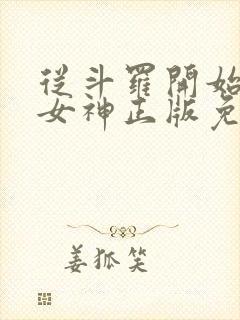 從斗羅開始
女神正版免
姜狐笑